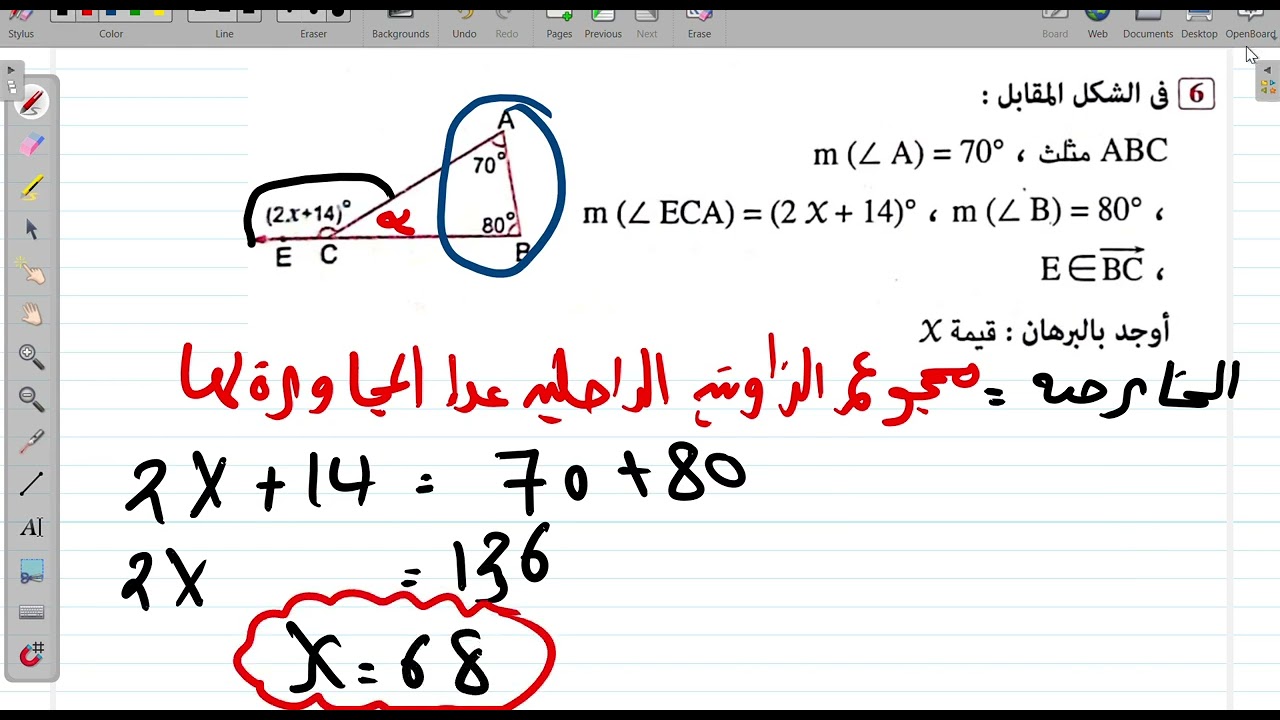 Stylus Color Line Eraser Backgrounds Undo Redo Pages Previous Next Erase Board Web Documents Desktop OpenBoard
6 فى الشكل المقابل :
ABC مثلث ، m (∠ A) = 70°
، m (∠ B) = 80° ، m (∠ ECA) = (2 X + 14)°
، E ∈ BC
أوجد بالبرهان : قيمة X
A
70°
(2x+14)°
80°
E C B
الخارجه = مجموع الزاويتين الداخليه عدا المجاورة لها
2X + 14 = 70 + 80
2X = 136
X = 68